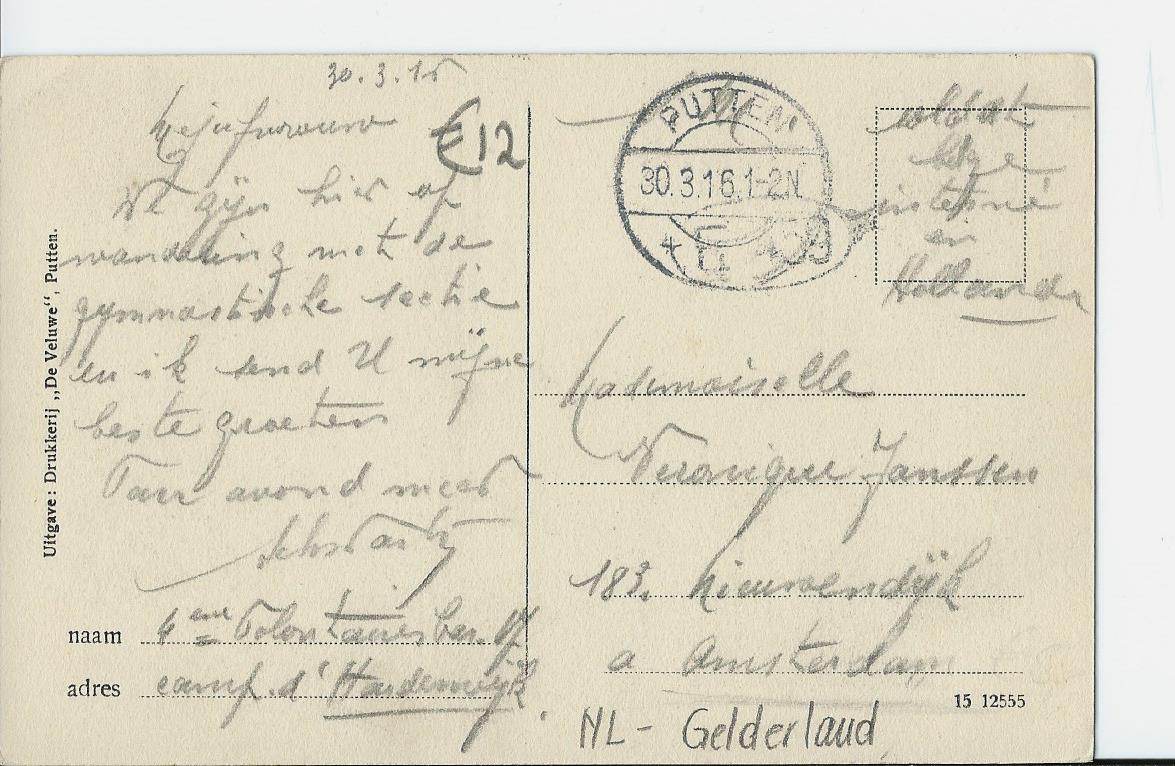 30.3.16
Mejufvrouw
€12
We zijn hier op
wandeling met de
gymnastische sectie
en ik send U mijne
beste groeten
Van avond meer
Schwartz
naam 4eme Volontaires bar.
adres camp. d'Harderwijk
Uitgave: Drukkerij „De Veluwe“, Putten.
PUTTEN
30.3.16.1-2N
soldat
belge
interné
en
Hollande
Mademoiselle
Veronique Janssen
183. Nieuwendijk
a Amsterdam
15 12555
NL - Gelderland